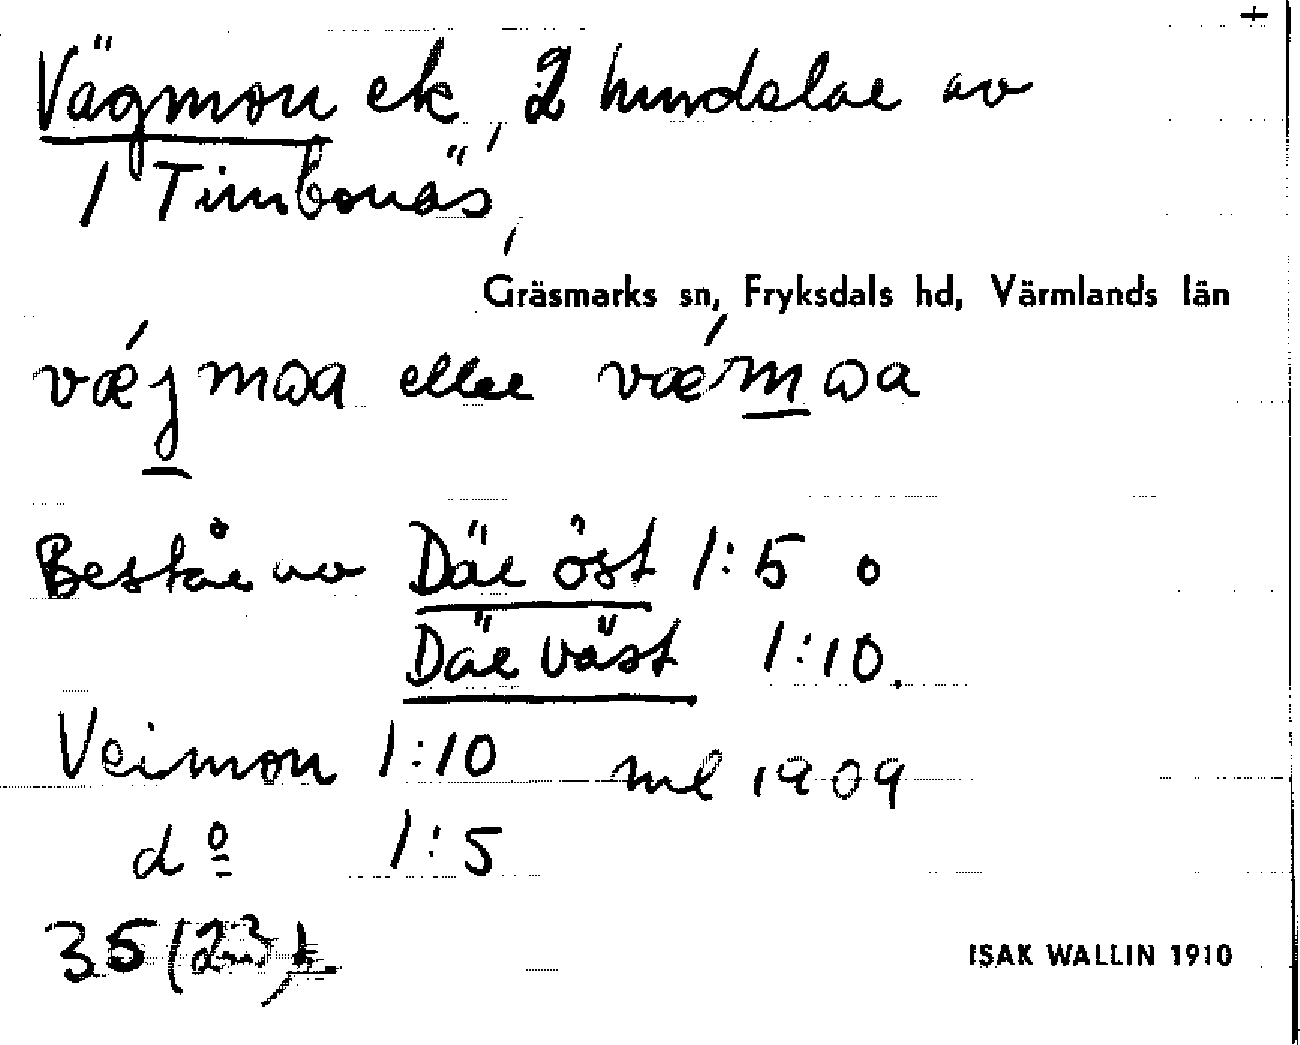 Vägmon ek, 2 hemdelar av
1 Timbonäs,
Gräsmarks sn, Fryksdals hd, Värmlands län
vǽjmɷa eller vǽmɷa
Består av Där öst 1:5 o
Där väst 1:10.
Veimon 1:10 ml 1909
do 1:5
35 (23)
ISAK WALLIN 1910